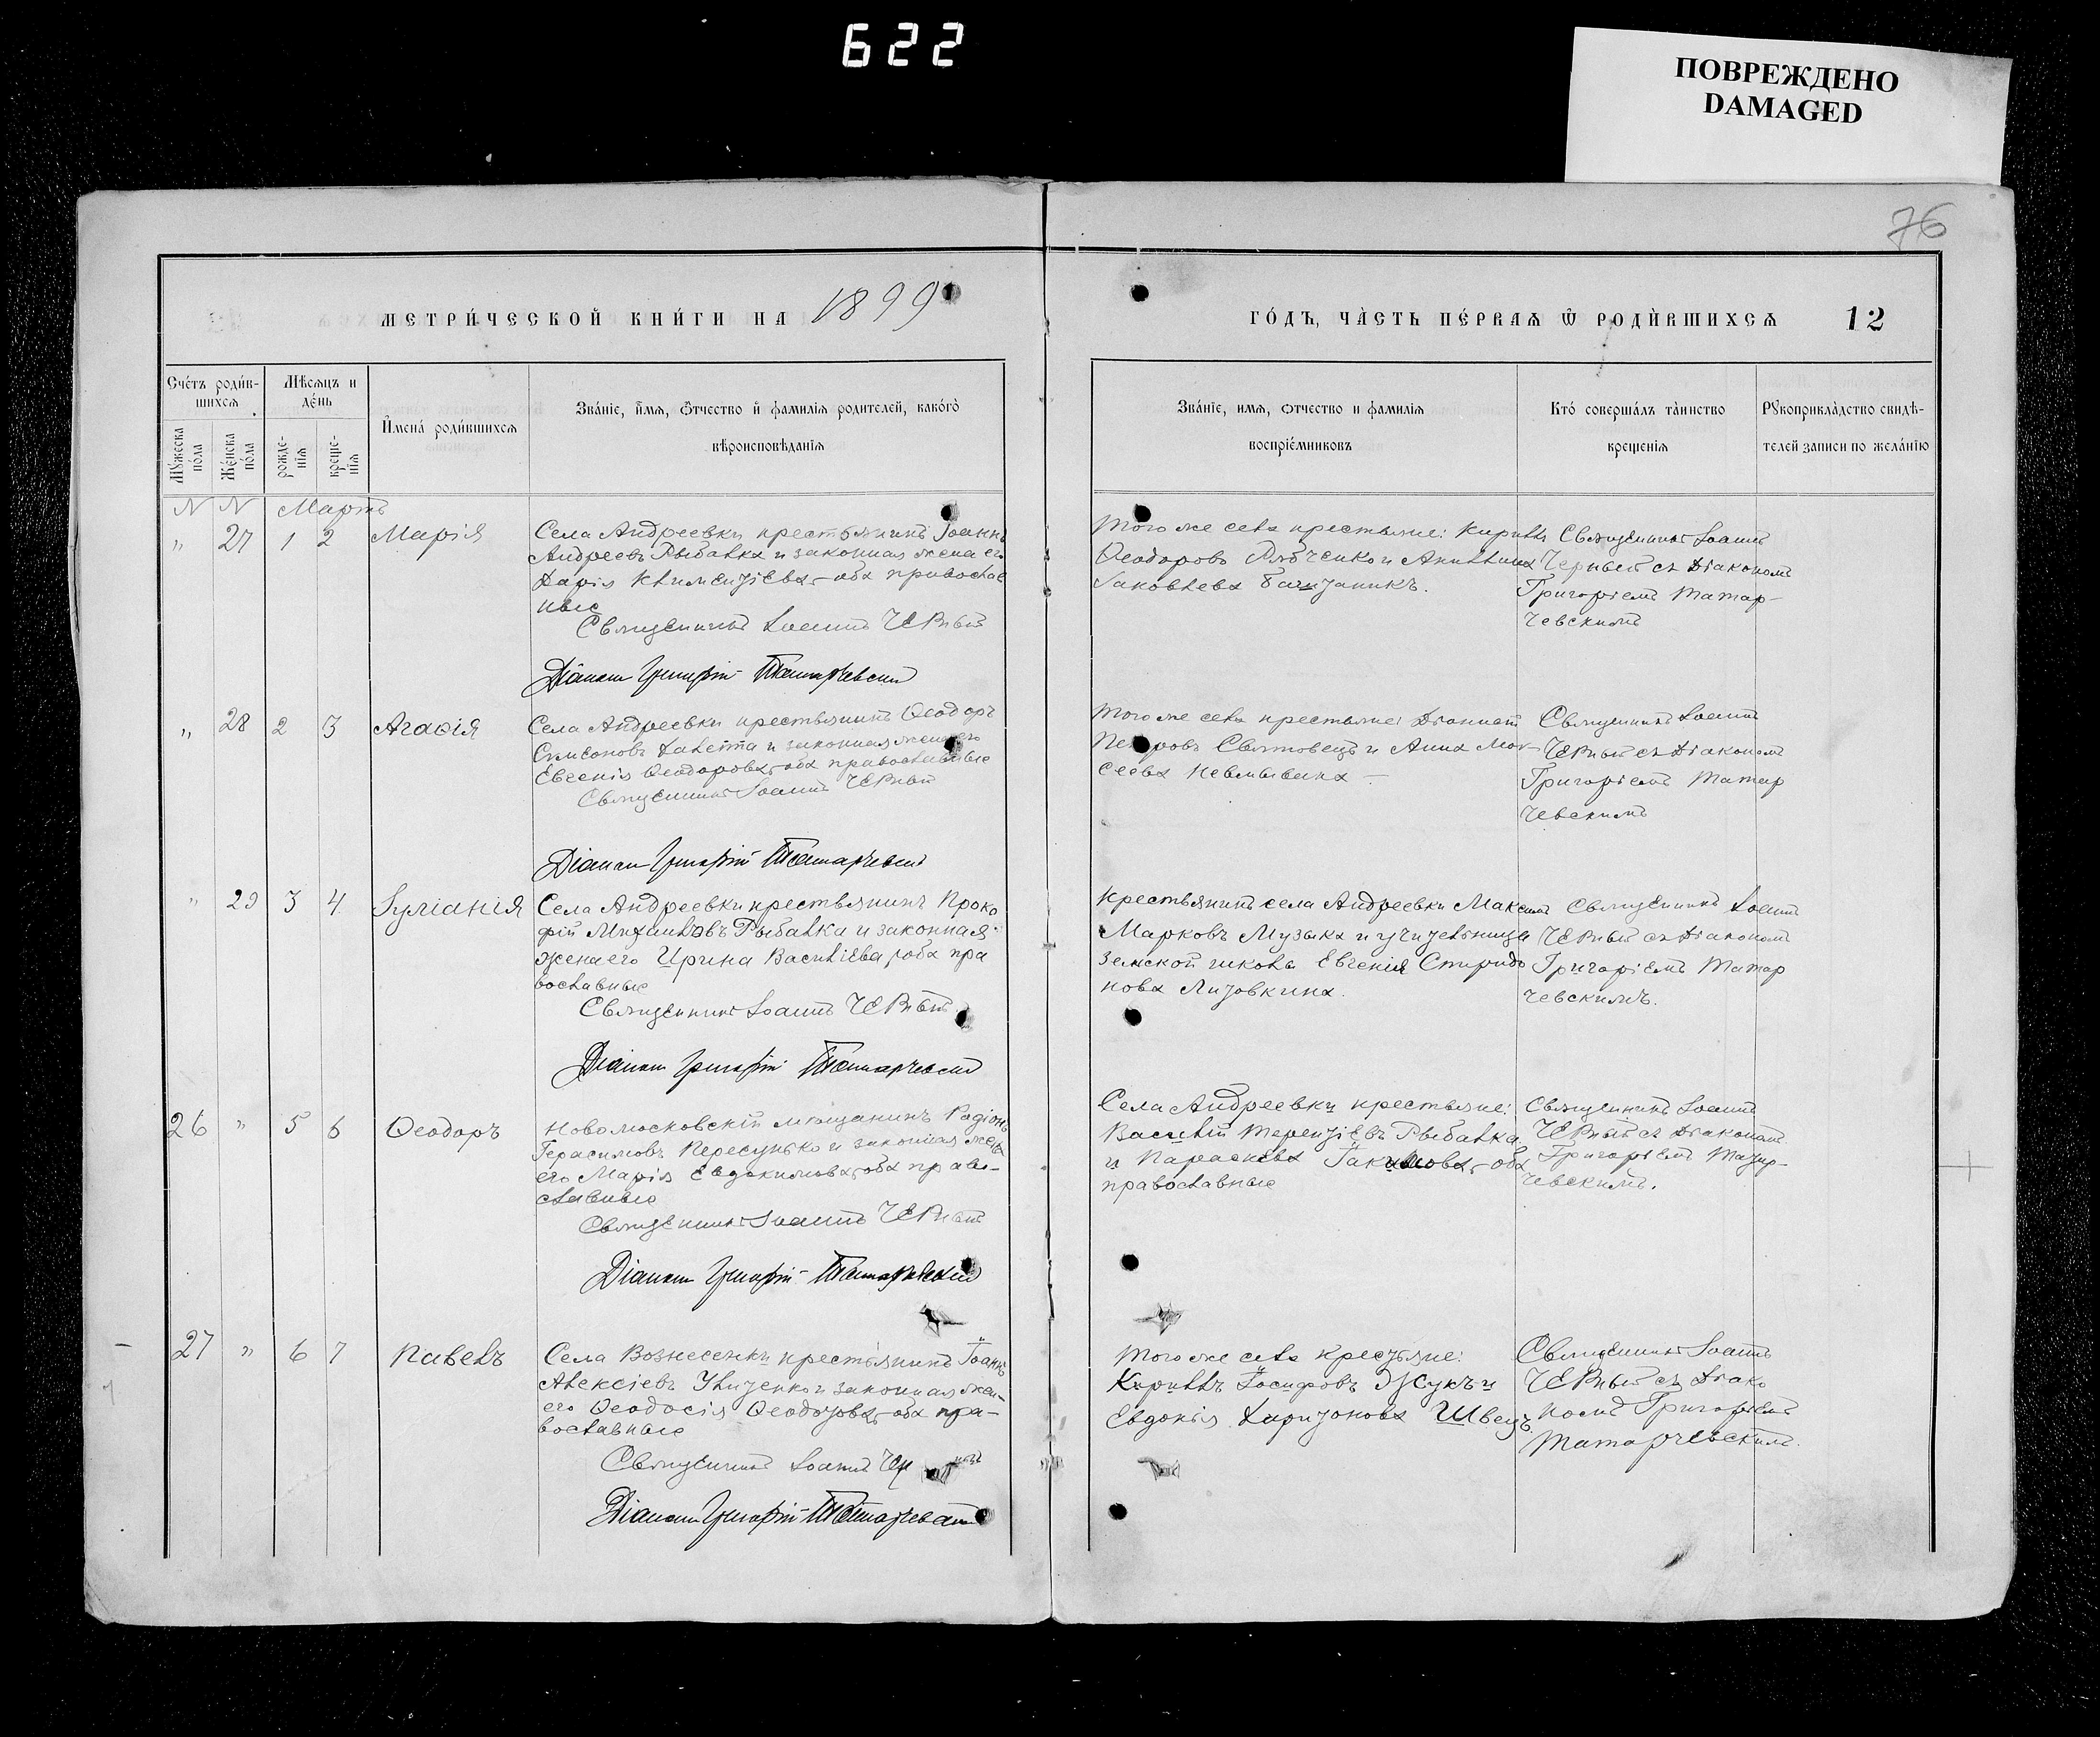 622
ПОВРЕЖДЕНО
DAMAGED
76
МЕТРИ́ЧЕСКОЙ КНИ́ГИ НА 1899
ГО́ДЪ, ЧА̀СТЬ ПЕ́РВАѦ Ѿ РОДИ́ВШИХСѦ 12
Сче́тъ роди́в-
шихсѧ
Мѣсѧцъ и
де́нь
И҆мена́ роди́вшихсѧ
Зва́нїе, и҆́мѧ, ѻ҆́тчество и҆ фамилїѧ родителей, како́гѡ
вѣроисповѣданїѧ
Мꙋ́жеска
по́ла
Же́нска
по́ла
рожде-
нїѧ
креще-
нїѧ
Зва́нїе, имѧ, ѻтчество и фамилїѧ
воспрїе́мниковъ
Кто́ соверша́лъ та̀инство
крещенїѧ
Рꙋкоприкла̀дство свидѣ-
телей записи по жела́нїю
N N Мартъ
" 27 1 2 Марія
Села Андреевки крестьянинъ Іоаннъ
Андреевъ Рыбалка и законная жена его
Дарія Климентіева, оба православ
ные
Священникъ Іоаннъ Черный
Діаконъ Григорій Татарчевскій
Того же села крестьяне: Кириллъ
Ѳеодоровъ Рябченко и Акилина
Іаковлева
Священникъ Іоаннъ
Черный съ Діакономъ
Григоріемъ Татар-
чевскимъ
" 28 2 3 Агаѳія
Села Андреевки крестьянинъ Ѳеодоръ
Симеоновъ и законная жена его
Евгенія Ѳеодорова, оба православные
Священникъ Іоаннъ Черный
Діаконъ Григорій Татарчевскій
Того же села крестьяне:
Петровъ Святовецъ и Анна Мок-
сеева
Священникъ Іоаннъ
Черный съ Діакономъ
Григоріемъ Татар
чевскимъ
" 29 3 4 Іуліанія
Села Андреевки крестьянинъ Проко
фій Михаиловъ Рыбалка и законная
жена его Ирина Василіева, оба пра
вославные
Священникъ Іоаннъ Черный
Діаконъ Григорій Татарчевскій
Крестьянинъ села Андреевки Максимъ
Марковъ Музыка и учительница
земской школы Евгенія Спиридо
нова Лизовкина.
Священникъ Іоаннъ
Черный съ Діакономъ
Григоріемъ Татар
чевскимъ.
26 " 5 6 Ѳеодоръ
Новомосковскій мѣщанинъ Родіонъ
Герасимовъ Пересунько и законная жена
его Марія Евдокимова, оба право-
славные
Священникъ Іоаннъ Черный
Діаконъ Григорій Татарчевскій
Села Андреевки крестьяне:
Василій Терентіевъ Рыбалка
и Параскева Іакимова, оба
православные
Священникъ Іоаннъ
Черный съ Діакономъ
Григоріемъ Татар-
чевскимъ.
27 " 6 7 Павелъ
Села Вознесенки крестьянинъ Іоаннъ
Алексіевъ и законная жена
его Ѳеодосія Ѳеодотова, оба пра-
вославные
Священникъ Іоаннъ
Діаконъ Григорій Татарчевскій
Того же села крестьяне:
Кириллъ Іосифовъ Жукъ и
Евдокія Харитонова Швецъ.
Священникъ Іоаннъ
Черный съ Діако
номъ Григоріемъ
Татарчевскимъ.